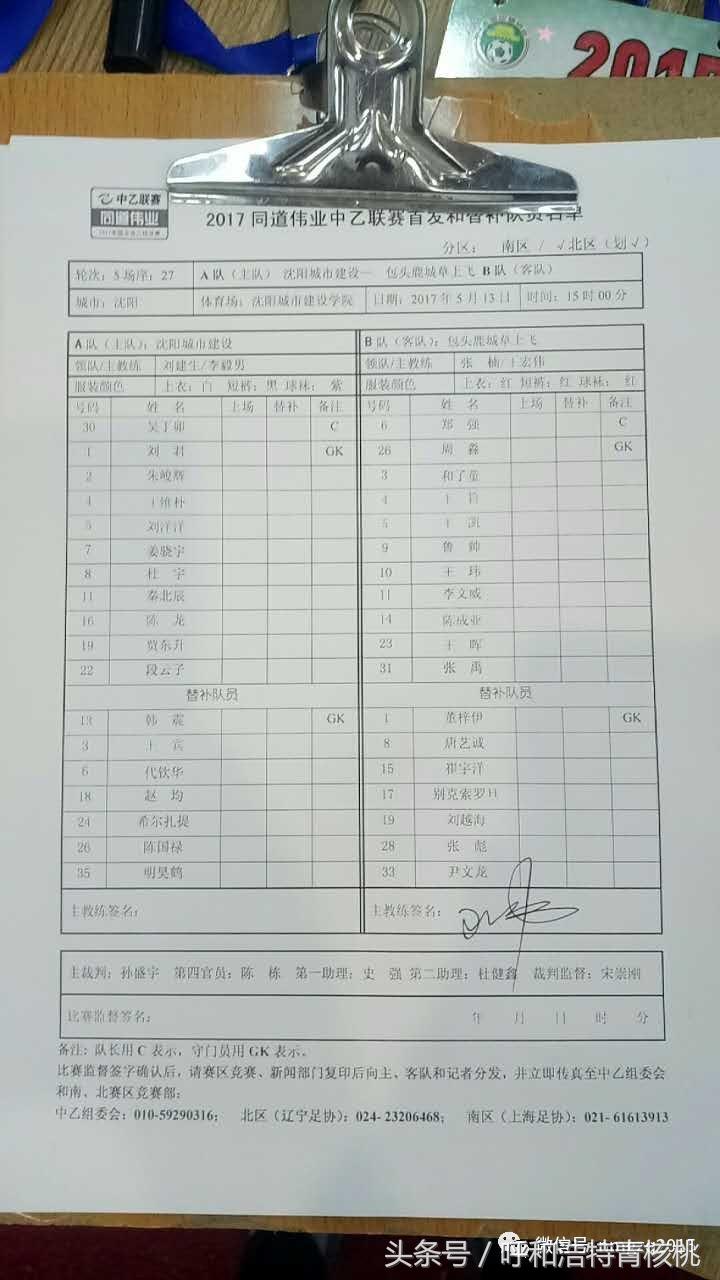 2017
中乙联赛
同道伟业
2017 同道伟业中乙联赛首发和替补队员名单
分区： 南区 / √北区（划√）
轮次：8 场序：27 A 队（主队） 沈阳城市建设— 包头鹿城草上飞 B 队（客队）
城市：沈阳 体育场：沈阳城市建设学院 日期：2017 年 5 月 13 日 时间：15 时 00 分
A 队（主队）：沈阳城市建设 B 队（客队）：包头鹿城草上飞
领队/主教练 刘建生/李毅男 领队/主教练 张 楠/王宏伟
服装颜色 上衣：白 短裤：黑 球袜： 紫 服装颜色 上衣：红 短裤：红 球袜： 红
号码 姓 名 上场 替补 备注 号码 姓 名 上场 替补 备注
30 吴丁卯 C 6 郑 强 C
1 刘 君 GK 26 周 淼 GK
2 朱峻辉 3 和子童
4 王维朴 4 王
5 刘洋洋 5 王 凯
7 姜骁宇 9 鲁 帅
8 杜 宇 10 王 玮
11 秦北辰 11 李文威
16 陈 龙 14 陈成业
19 贾东升 23 王 晖
22 段云子 31 张 禹
替补队员 替补队员
13 韩 震 GK 1 董梓伊 GK
3 王 宾 8 唐艺诚
6 代钦华 15 崔宇洋
18 赵 均 17 别克索罗日
24 希尔扎提 19 刘越海
26 陈国禄 28 张 彪
35 明昊鹤 33 尹文龙
主教练签名： 主教练签名：
主裁判：孙盛宇 第四官员：陈 栋 第一助理：史 强 第二助理：杜健鑫 裁判监督：宋崇刚
比赛监督签名： 年 月 日 时 分
备注：队长用 C 表示，守门员用 GK 表示。
比赛监督签字确认后，请赛区竞赛、新闻部门复印后向主、客队和记者分发，并立即传真至中乙组委会
和南、北赛区竞赛部：
中乙组委会：010-59290316； 北区（辽宁足协）：024- 23206468； 南区（上海足协）：021- 61613913
微信号
头条号 / 呼和浩特青核桃